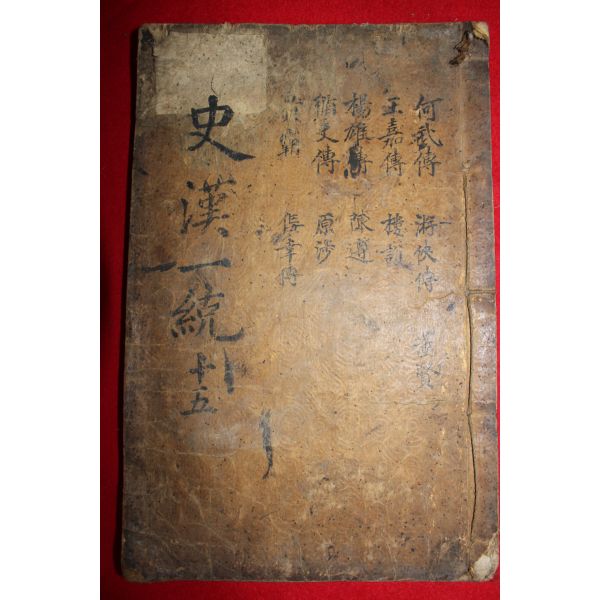 何武傳 游俠傳 董賢
王嘉傳 樓護
楊雄傳 陳遵
循吏傳 原涉
黃霸 佞幸傳
史漢一統 十五